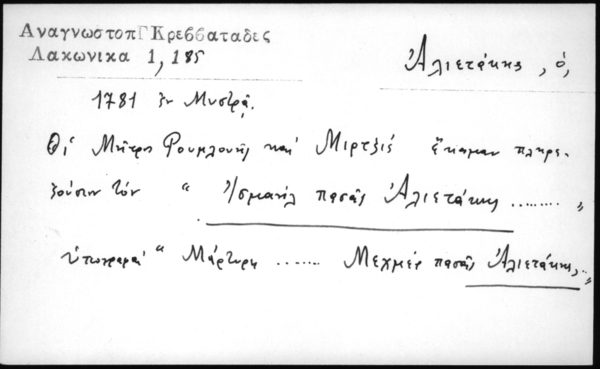 ΑναγνωστοπΓΚρεββαταδες
Λακωνικα 1, 185
Ἀλιετάκης, ὁ,
1781 ἐν Μυστρᾷ.
Οἱ Μῆτρο καὶ ἔκαμαν πληρε-
ξούσιον τὸν " Ἰσμαὴλ πασᾶς Ἀλιετάκης ......... "
ὑπογραφαὶ " Μάρτυρη ....... Μεχμὲτ πασᾶς Ἀλιετάκης, "